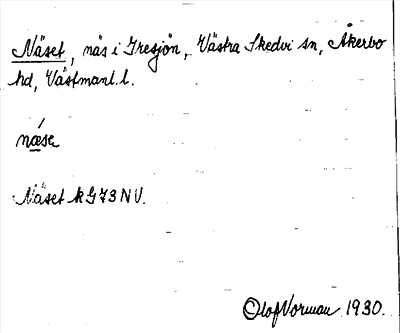 Näset, näs i Gresjön, Västra Skedvi sn, Åkerbo
hd, Västmanl. l.
nǽsę
Näset k G 73 NV.
Olof Vorman 1930.